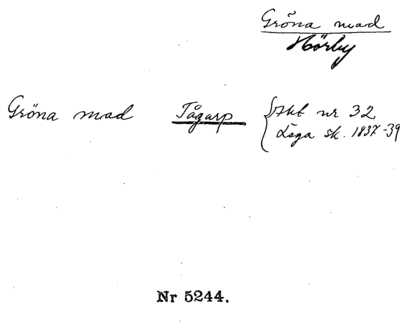 Gröna mad
Hörby
Gröna mad Tågarp { Akt nr 32
Laga sk. 1837-39
Nr 5244.